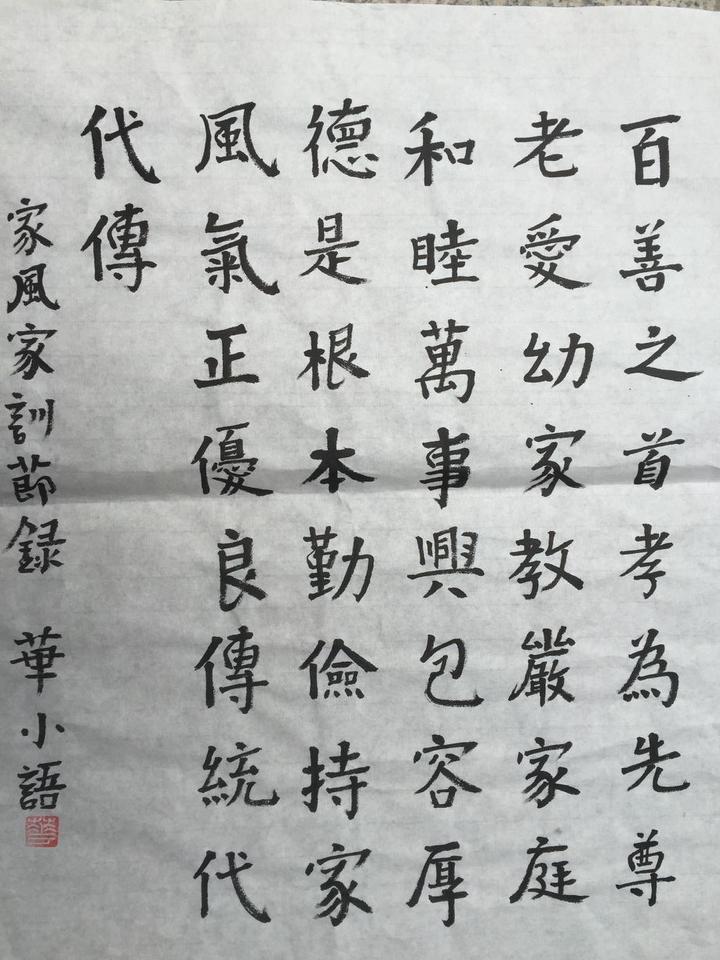 百善之首孝為先尊
老愛幼家教嚴家庭
和睦萬事興包容厚
德是根本勤儉持家
風氣正優良傳統代
代傳
家風家訓節録 華小語
華